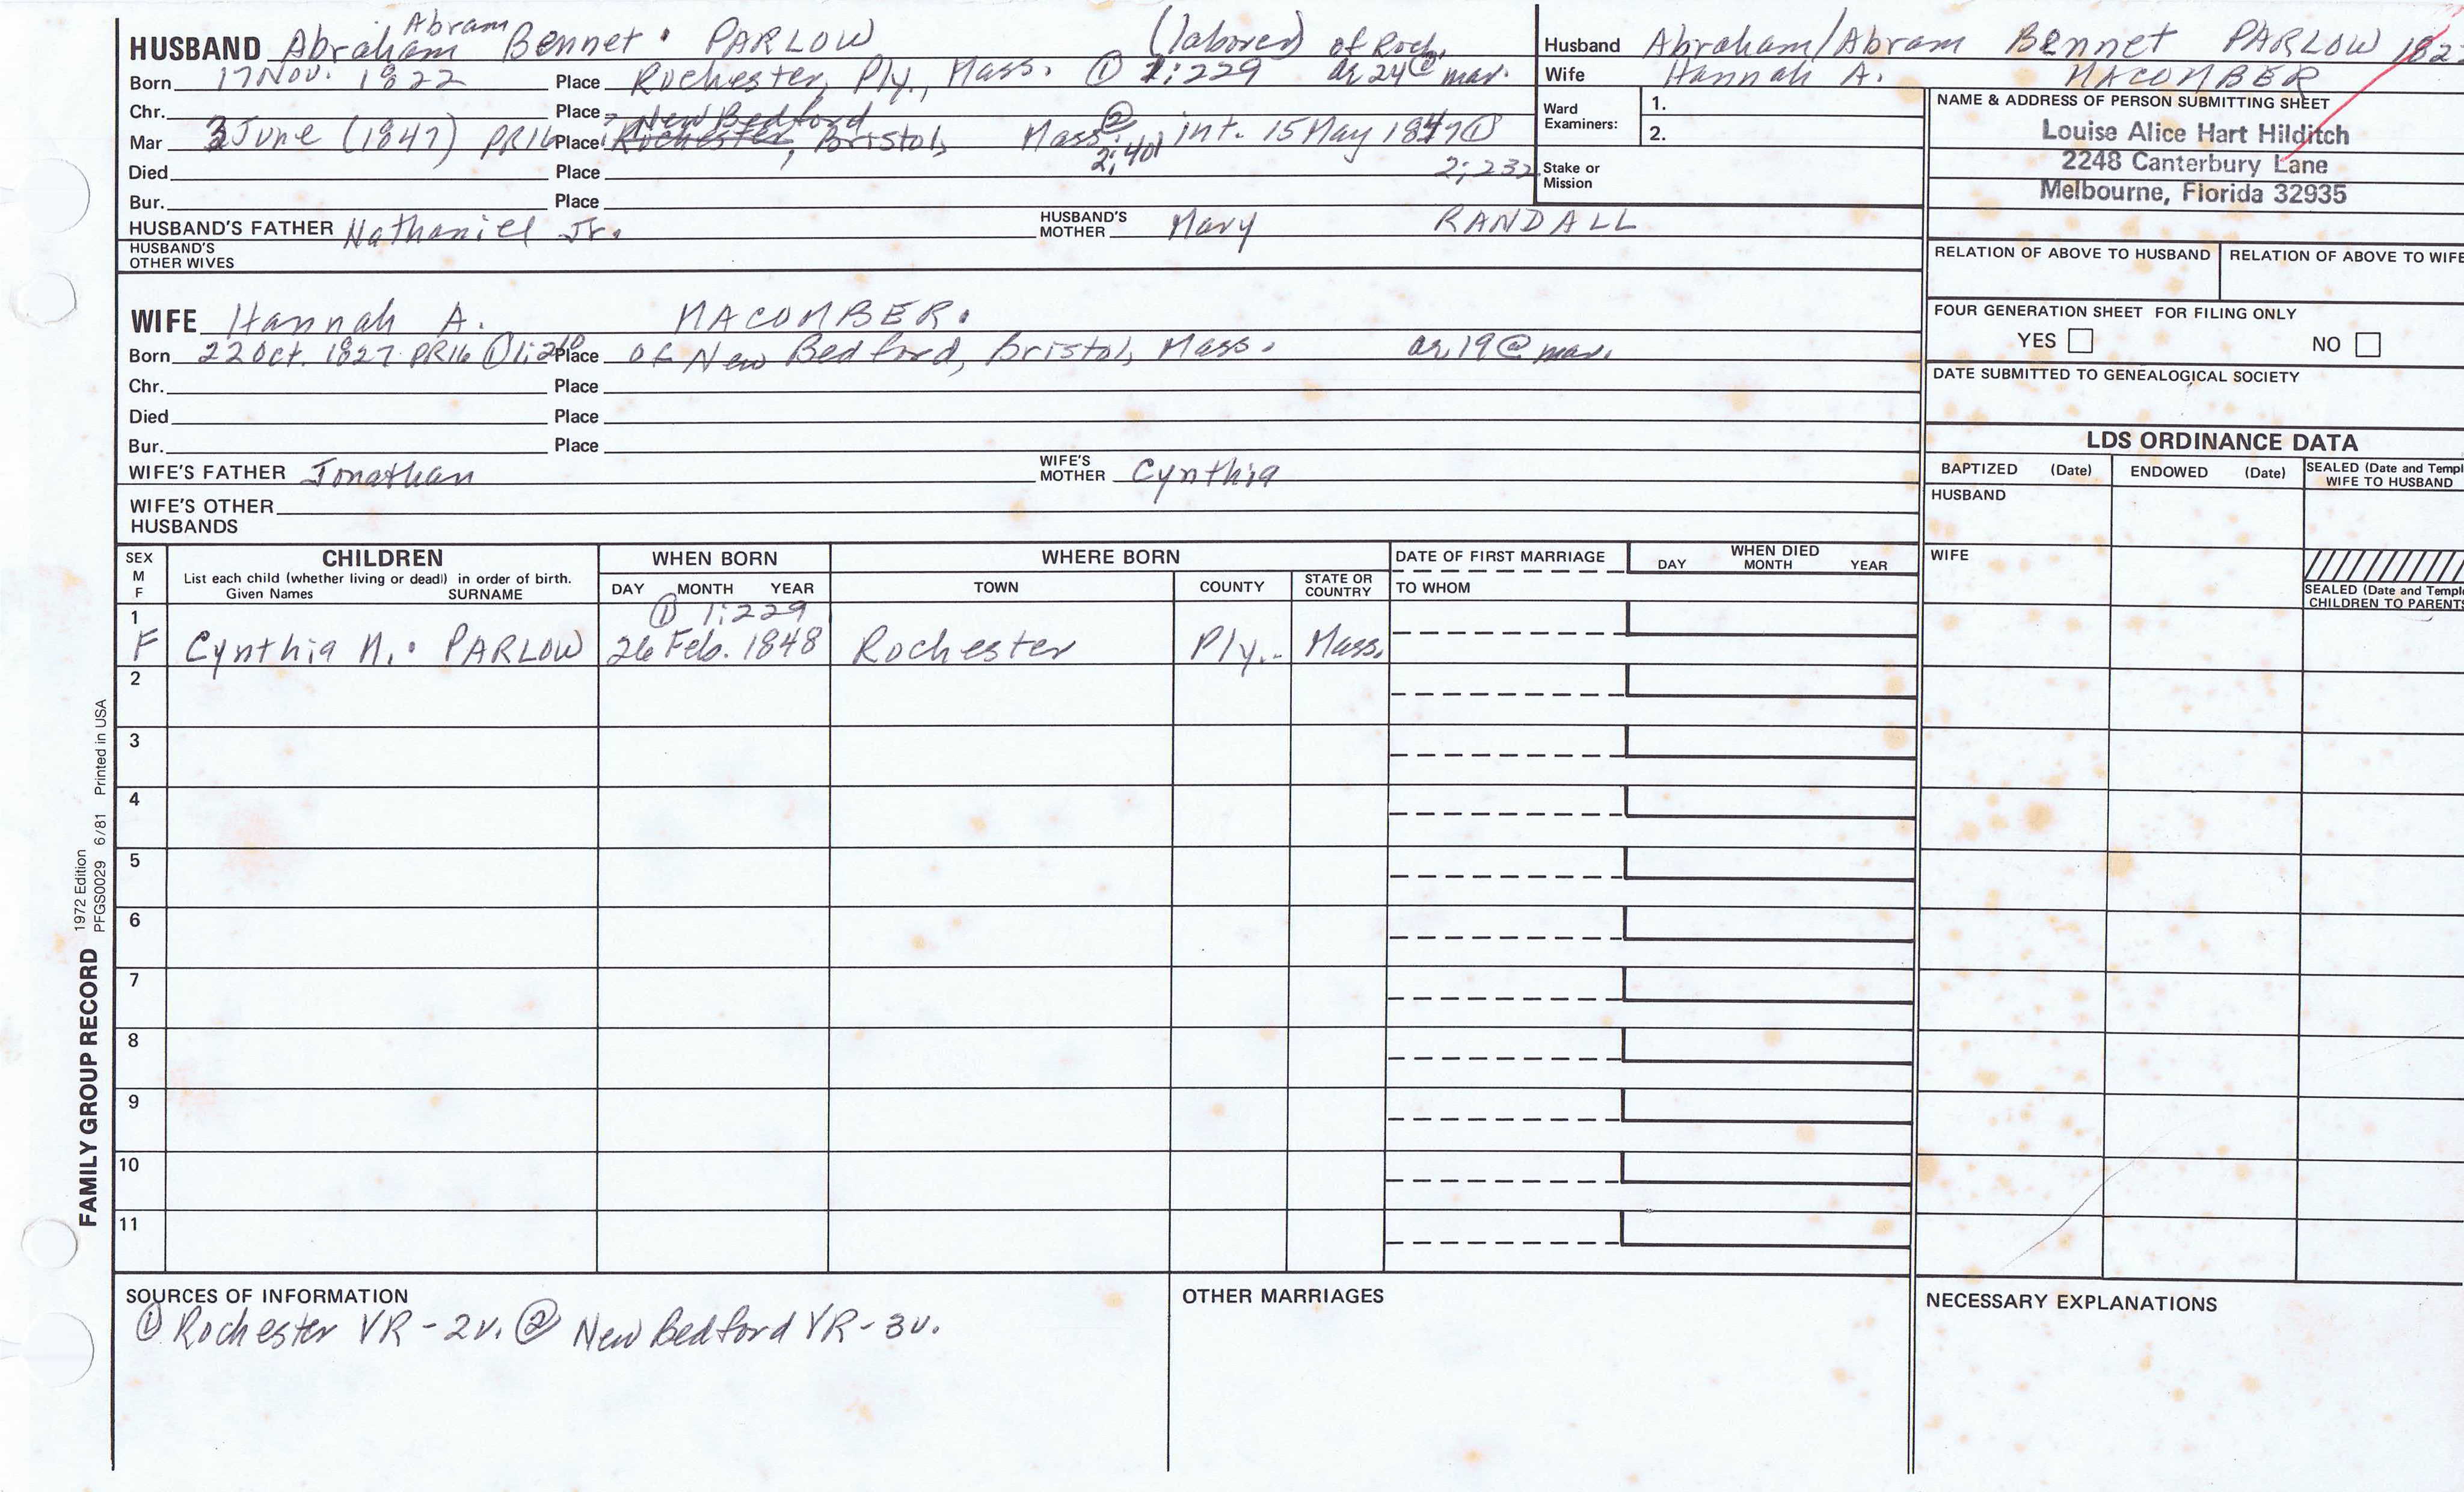 HUSBAND Abraham Abram Bennet. PARLOW (laborer) of Roch.
Born 17 Nov. 1822 Place Rochester, Ply., Mass. ① 1:229 ae 24 @ mar.
Chr. Place New Bedford
Mar 3 June (1847) PR16 Place Rochester, Bristol, Mass. ② 2:401 int. 15 May 1847 ① 2:232
Died Place
Bur. Place
HUSBAND'S FATHER Nathaniel Jr. HUSBAND'S MOTHER Mary RANDALL
HUSBAND'S OTHER WIVES
Husband Abraham/Abram Bennet PARLOW
Wife Hannah A. MACOMBER
Ward Examiners: 1.
2.
Stake or Mission
NAME & ADDRESS OF PERSON SUBMITTING SHEET
Louise Alice Hart Hilditch
2248 Canterbury Lane
Melbourne, Florida 32935
RELATION OF ABOVE TO HUSBAND RELATION OF ABOVE TO WIFE
FOUR GENERATION SHEET FOR FILING ONLY
YES NO
DATE SUBMITTED TO GENEALOGICAL SOCIETY
WIFE Hannah A. MACOMBER.
Born 22 Oct. 1827 PR16 ① 1:210 Place of New Bedford, Bristol, Mass. ae 19 @ mar.
Chr. Place
Died Place
Bur. Place
WIFE'S FATHER Jonathan WIFE'S MOTHER Cynthia
WIFE'S OTHER HUSBANDS
LDS ORDINANCE DATA
BAPTIZED (Date) ENDOWED (Date) SEALED (Date and Templ
WIFE TO HUSBAND
HUSBAND
WIFE
SEALED (Date and Temple
CHILDREN TO PARENTS
SEX M F CHILDREN WHEN BORN WHERE BORN DATE OF FIRST MARRIAGE WHEN DIED
List each child (whether living or dead) in order of birth.
Given Names SURNAME DAY MONTH YEAR TOWN COUNTY STATE OR COUNTRY TO WHOM DAY MONTH YEAR
1 ① 1:229
F Cynthia M.. PARLOW 26 Feb. 1848 Rochester Ply.. Mass.
2
3
4
5
6
7
8
9
10
11
FAMILY GROUP RECORD 1972 Edition
PFGS0029 6/81 Printed in USA
SOURCES OF INFORMATION
① Rochester VR - 2v. ② New Bedford VR - 3v.
OTHER MARRIAGES
NECESSARY EXPLANATIONS